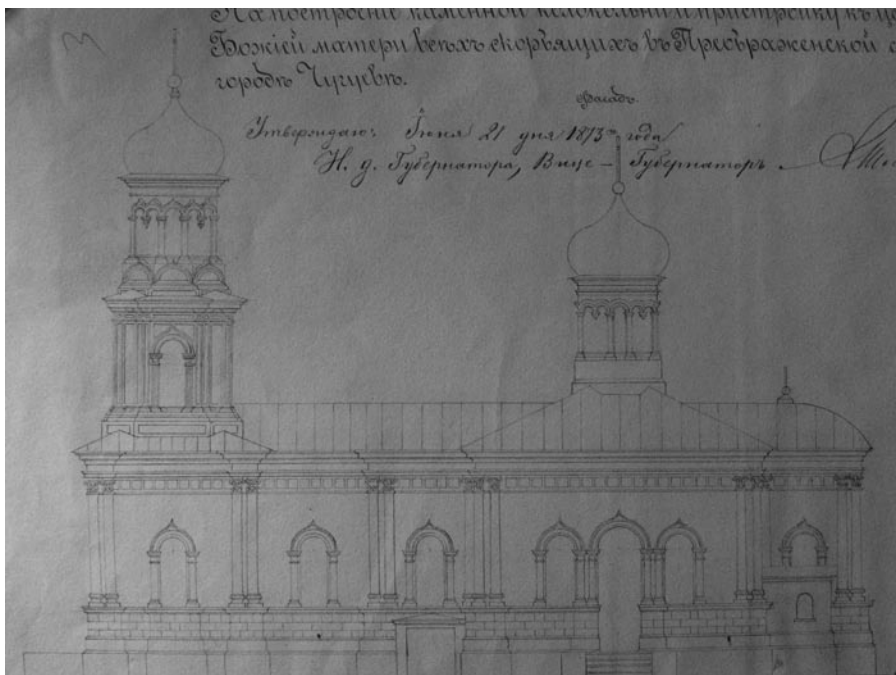 На построение каменной колокольни и пристройку къ
Божіей матери всѣхъ скорбящихъ въ Преображенской
городѣ Чугуевѣ.
Фасадъ.
Утверждаю: Іюня 21 дня 1873го года
И. д. Губернатора, Вице-Губернаторъ